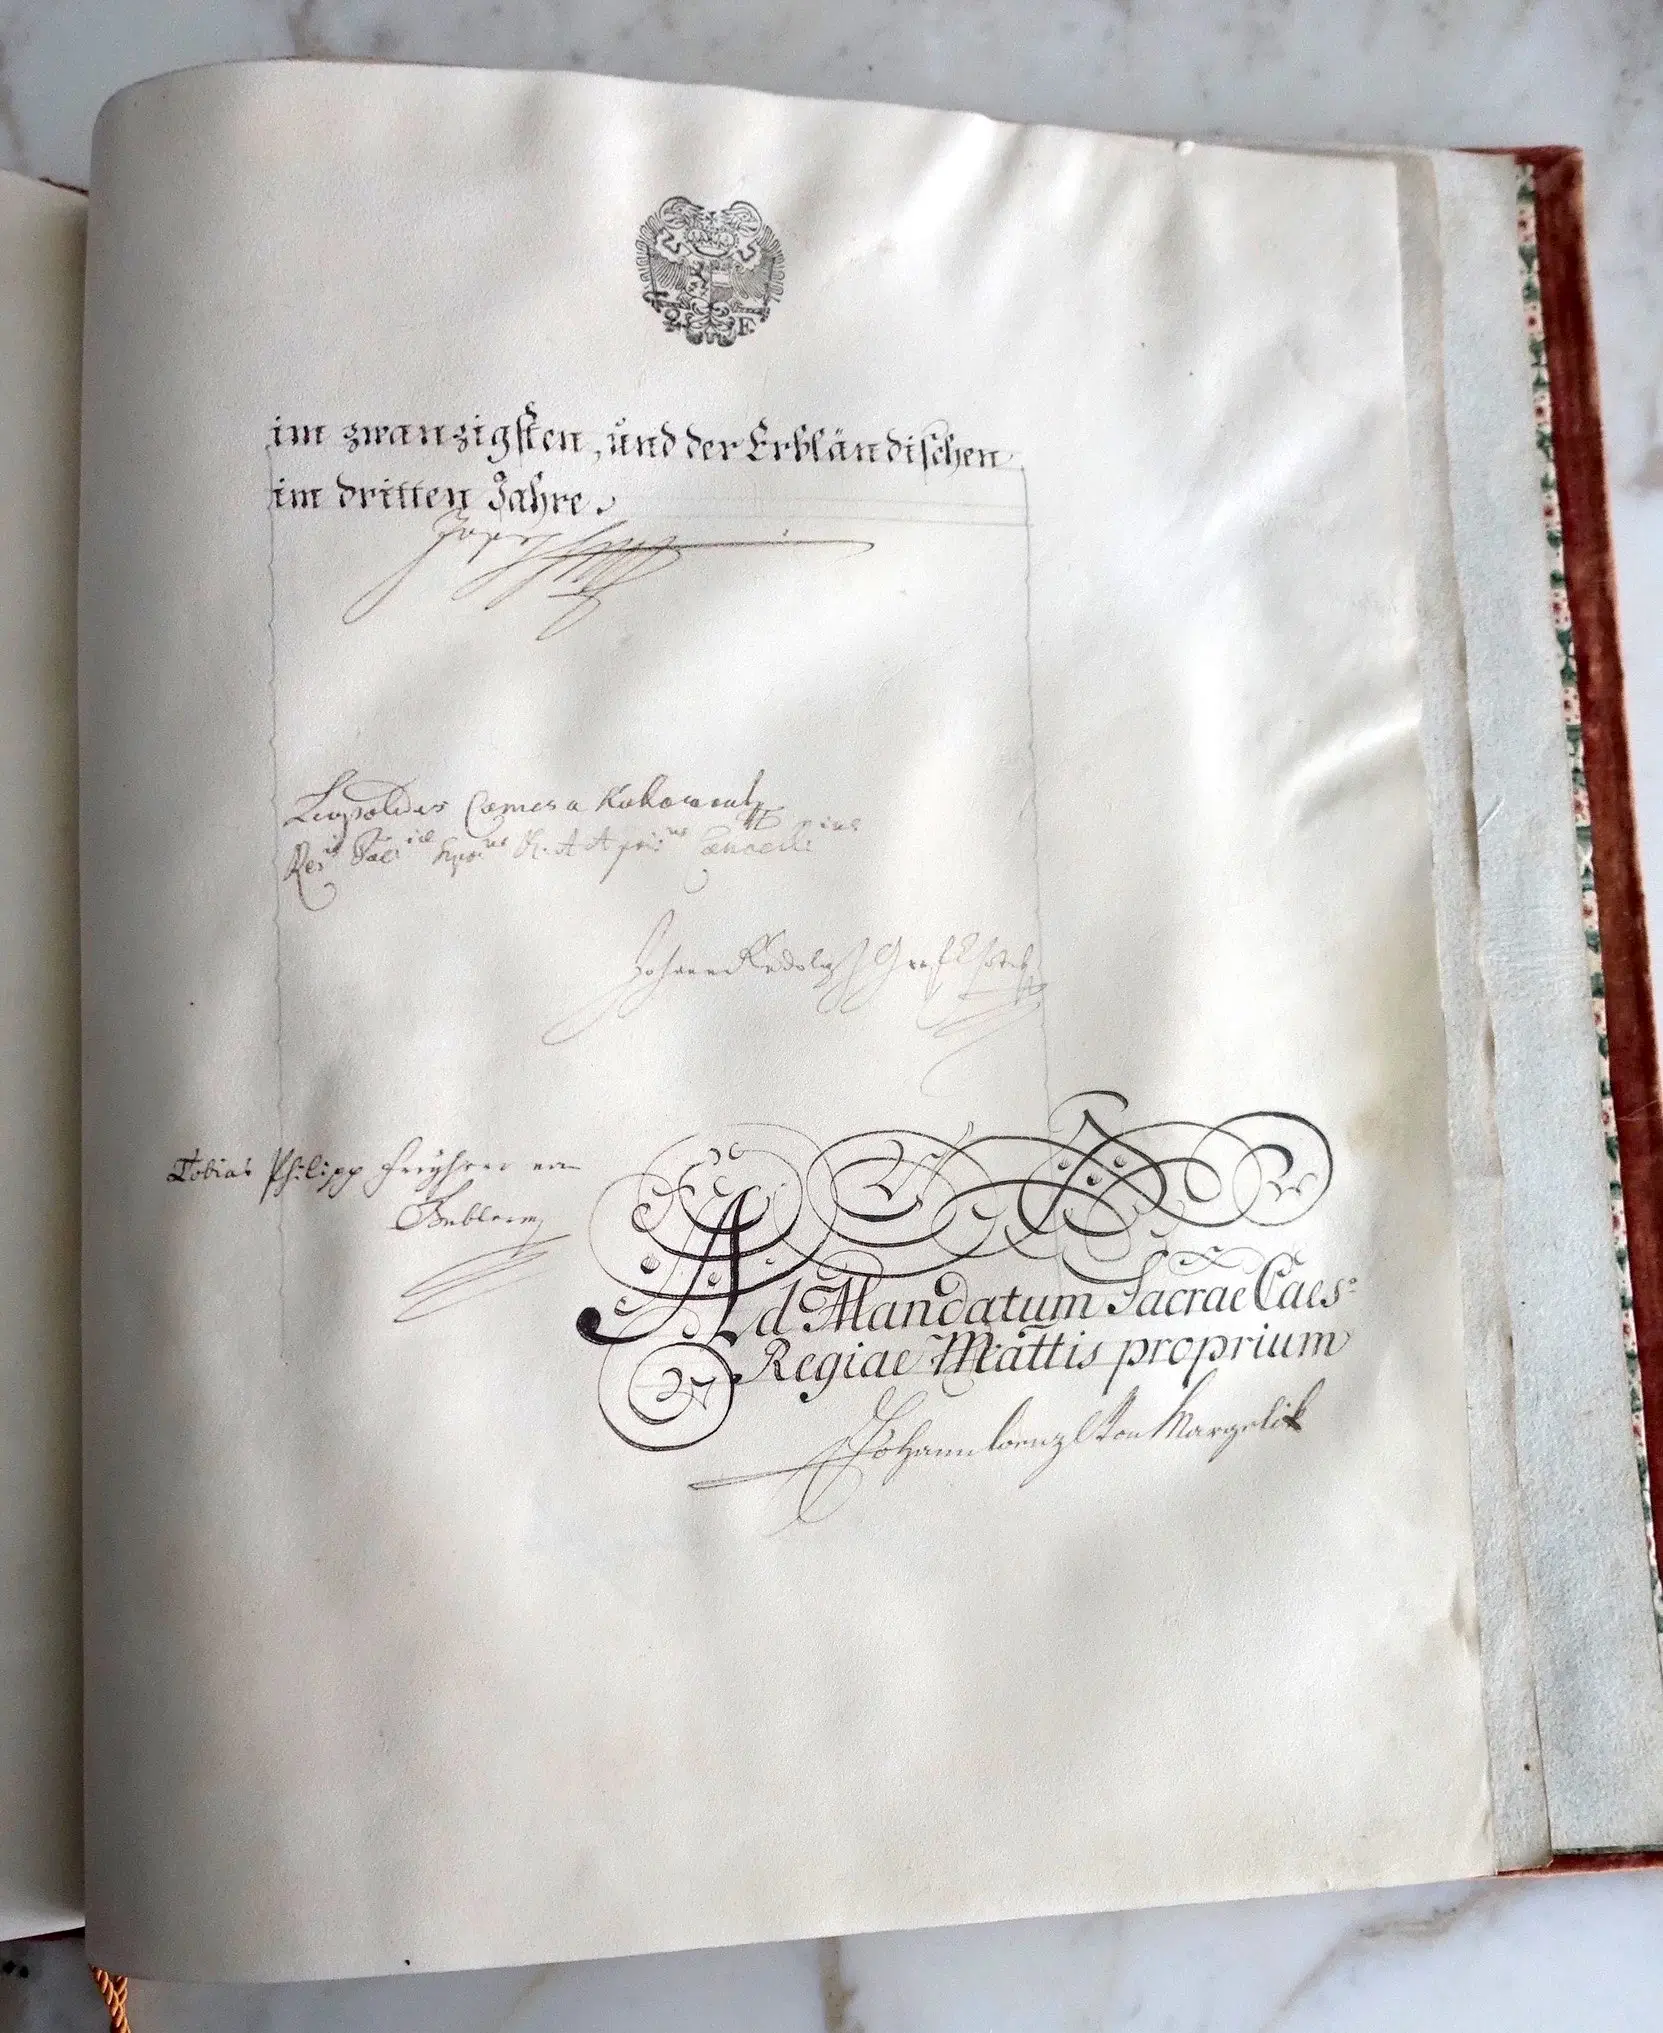 2 F.
im zwanzigsten, und der Erbländischen
im dritten Jahre.
Joseph
Leopoldus Comes a Kolowrath
Johann Rudolph Graf Chotek
Tobias Philipp Freyherr von
Gebler
Ad Mandatum Sacrae Caes:
Regiae Mattis proprium
Johann Wenzl von Margelik